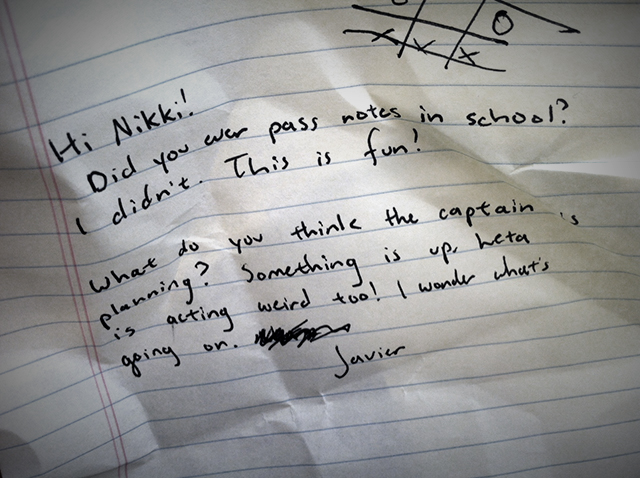 O
X X X
Hi Nikki!
Did you ever pass notes in school?
I didn't. This is fun!
What do you think the captain is
planning? Something is up, heta
is acting weird too! I wonder what's
going on.
Javier